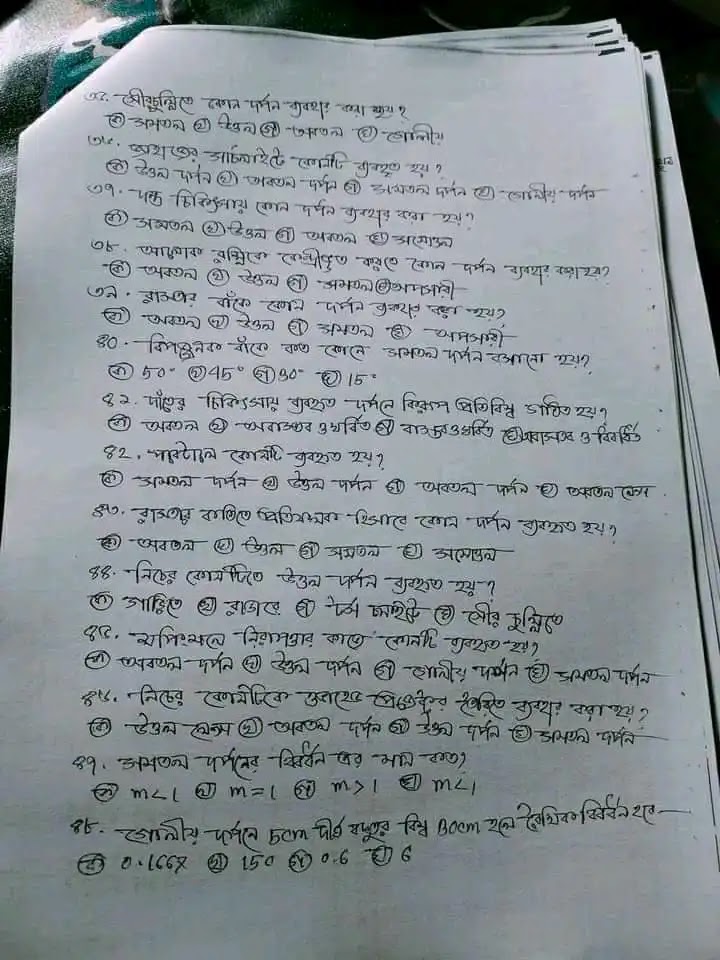 ৩৫. সৌরচুল্লিতে কোন দর্পন ব্যবহার করা হয়?
ক) সমতল খ) উত্তল গ) অবতল ঘ) গোলীয়
৩৬. জাহাজের সার্চলাইটে কোনটি ব্যবহৃত হয়?
ক) উত্তল দর্পন খ) অবতল দর্পন গ) সমতল দর্পন ঘ) গোলীয় দর্পন
৩৭. দন্ত চিকিৎসায় কোন দর্পন ব্যবহার করা হয়?
ক) সমতল খ) উত্তল গ) অবতল ঘ) সমোত্তল
৩৮. আলোক রশ্মিকে কেন্দ্রীভূত করতে কোন দর্পন ব্যবহার করা হয়?
ক) অবতল খ) উত্তল গ) সমতল ঘ) অপসারী
৩৯. রাস্তার বাঁকে কোন দর্পন ব্যবহার করা হয়?
ক) অবতল খ) উত্তল গ) সমতল ঘ) অপসারী
৪০. বিপজ্জনক বাঁকে কত কোনে সমতল দর্পন বসানো হয়?
ক) 50° খ) 45° গ) 30° ঘ) 15°
৪১. দাঁতের চিকিৎসায় ব্যবহৃত দর্পনে কিরূপ প্রতিবিম্ব গঠিত হয়?
ক) অবতল খ) অবাস্তব ও খর্বিত গ) বাস্তব ও খর্বিত ঘ) অবাস্তব ও বিবর্ধিত
৪২. কোনটি ব্যবহৃত হয়?
ক) সমতল দর্পন খ) উত্তল দর্পন গ) অবতল দর্পন ঘ) অবতল লেন্স
৪৩. রাস্তার বাতিতে প্রতিফলক হিসাবে কোন দর্পন ব্যবহৃত হয়?
ক) অবতল খ) উত্তল গ) সমতল ঘ) সমোত্তল
৪৪. নিচের কোনটিতে উত্তল দর্পন ব্যবহৃত হয়?
ক) গাড়িতে খ) রাডারে গ) টর্চ লাইটে ঘ) সৌর চুল্লিতে
৪৫. শপিংমলে নিরাপত্তার কাজে কোনটি ব্যবহৃত হয়?
ক) অবতল দর্পন খ) উত্তল দর্পন গ) গোলীয় দর্পন ঘ) সমতল দর্পন
৪৬. নিচের কোনটিকে ওভারহেড প্রজেক্টর তৈরিতে ব্যবহার করা হয়?
ক) উত্তল লেন্স খ) অবতল দর্পন গ) উত্তল দর্পন ঘ) সমতল দর্পন
৪৭. সমতল দর্পনের বিবর্ধন এর মান কত?
ক) m<1 খ) m=1 গ) m>1 ঘ) m<1
৪৮. গোলীয় দর্পনে 5cm দীর্ঘ বস্তুর বিম্ব 30cm হলে রৈখিক বিবর্ধন হবে—
ক) 0.1667 খ) 150 গ) 0.6 ঘ) 6